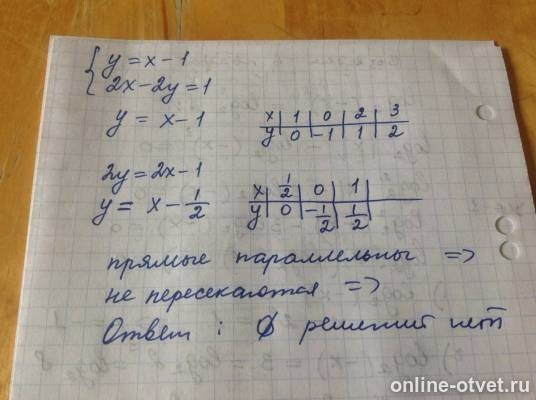 { y = x - 1
2x - 2y = 1
y = x - 1
x | 1 | 0 | 2 | 3
y | 0 | -1 | 1 | 2
2y = 2x - 1
y = x - 1/2
x | 1/2 | 0 | 1 |
y | 0 | -1/2 | 1/2 |
прямые параллельны =>
не пересекаются =>
Ответ : ∅ решений нет
online-otvet.ru